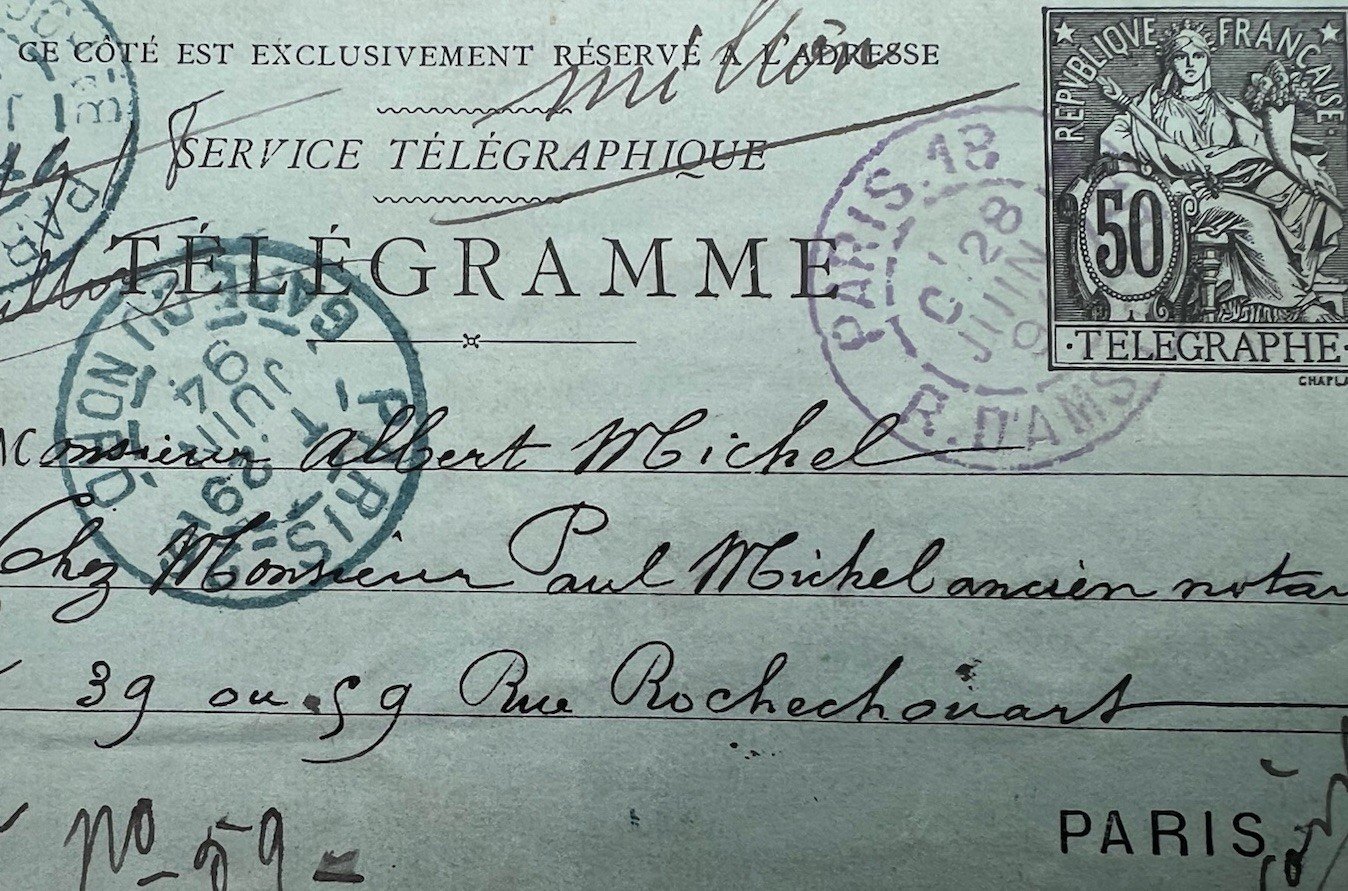 CE CÔTÉ EST EXCLUSIVEMENT RÉSERVÉ A L'ADRESSE
SERVICE TÉLÉGRAPHIQUE
TÉLÉGRAMME
REPVBLIQVE FRANÇAISE
50
TELEGRAPHE
CHAPLA
PARIS 18
28
JUIN
9
R. D'AMS
PARIS
GARE DU NORD
29
JUIN
94
Monsieur Albert Michel
Chez Monsieur Paul Michel ancien notai
39 ou 59 Rue Rochechouart
No 59
PARIS